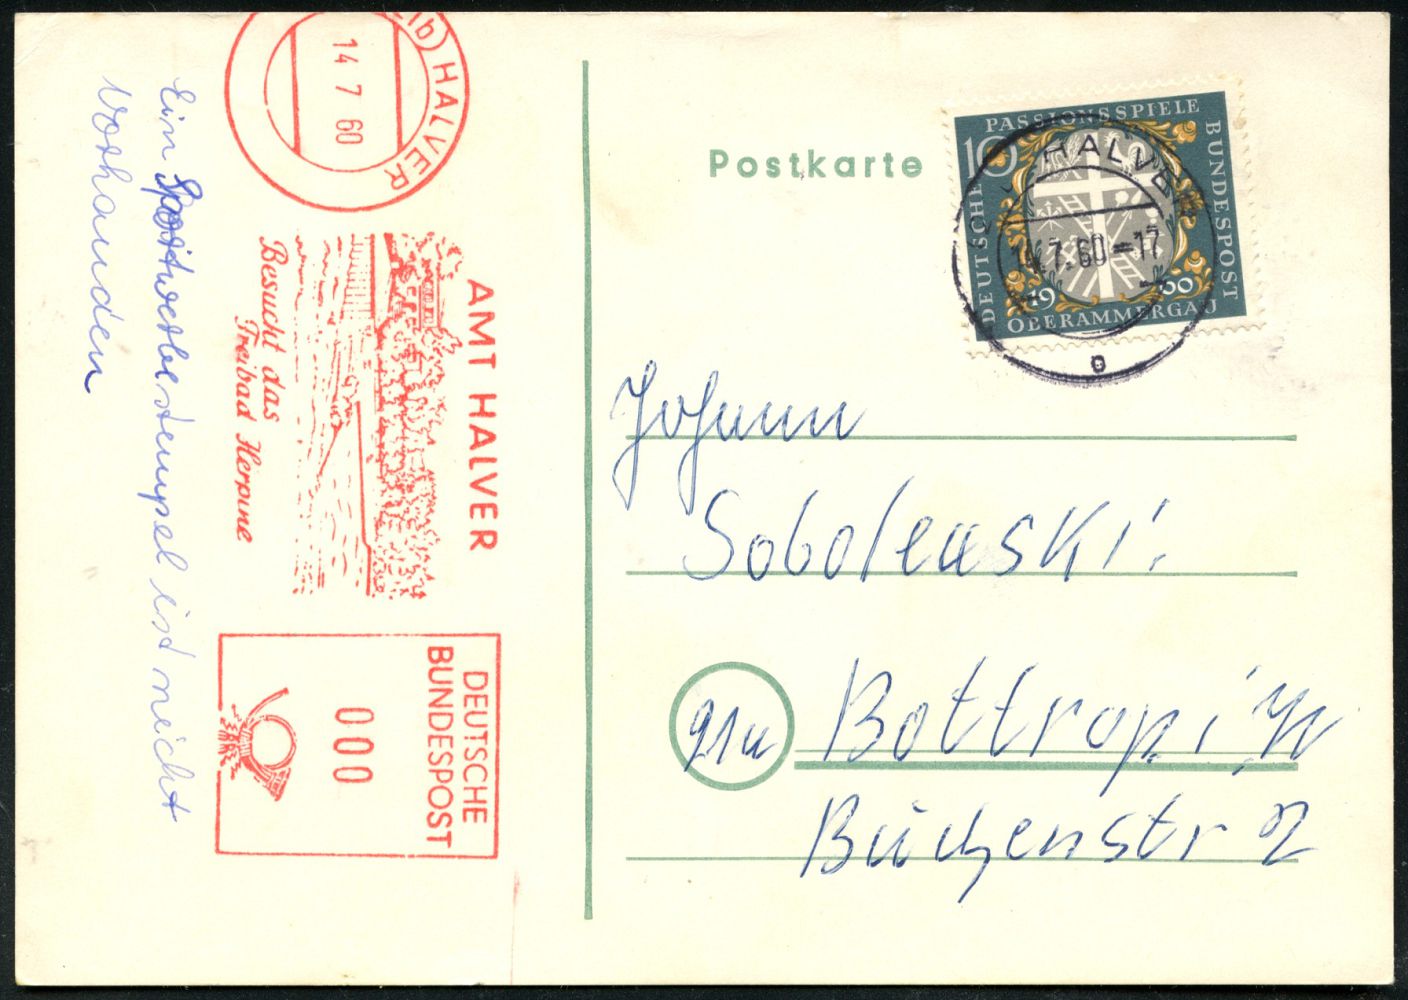 Ein Sportwerbestempel ist nicht
vorhanden
HALVER
14 7 60
HALVER
AMT HALVER
Besucht das
Freibad Herpine
DEUTSCHE
BUNDESPOST
000
Postkarte
PASSIONSSPIELE
10
DEUTSCHE
BUNDESPOST
1960
OBERAMMERGAU
HALVER
14.7.60-17
Johann
Sobolewski
21a Bottrop i/W
Buchenstr 2